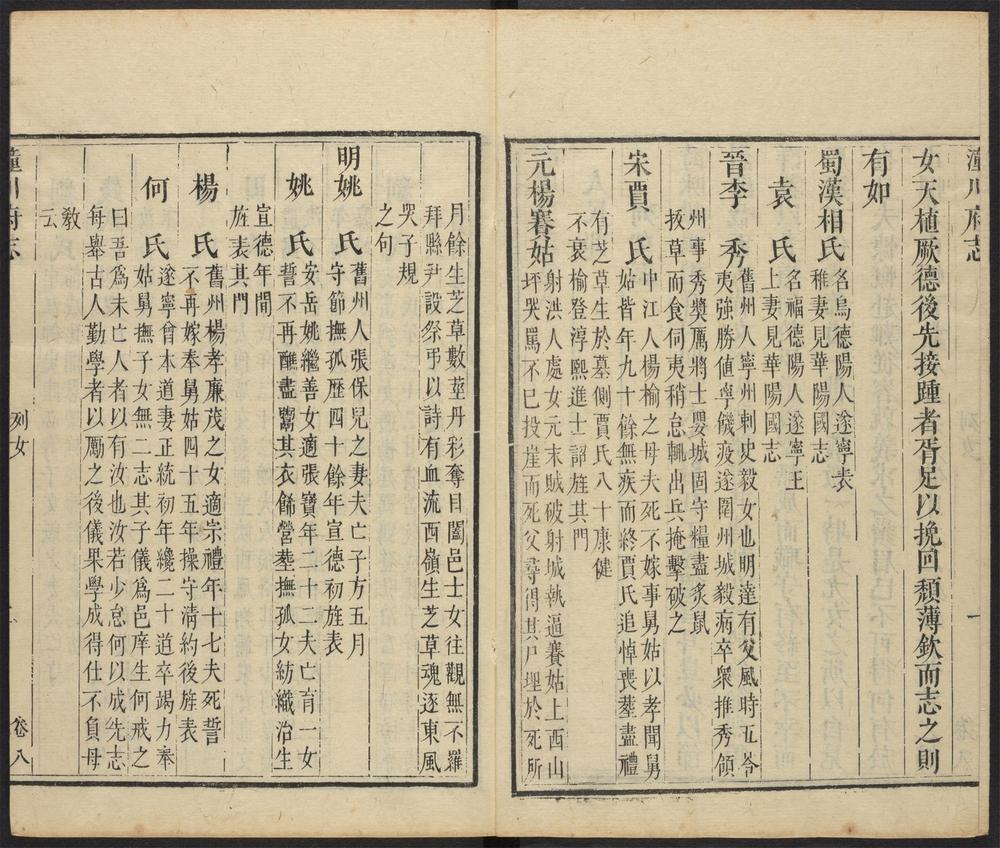 潼川府志
女天植厥德後先接踵者胥足以挽回頽薄欽而志之則
有如
蜀漢相氏名烏德陽人遂寧袁
稚妻見華陽國志
袁氏名福德陽人遂寧王
上妻見華陽國志
晉李秀舊州人寧州刺史毅女也明達有父風時五苓
夷強勝値寧饑疫遂圍州城毅病卒衆推秀領
州事秀獎厲將士嬰城固守糧盡炙鼠
拔草而食伺夷稍怠輒出兵掩擊破之
宋賈氏中江人楊榆之母夫死不嫁事舅姑以孝聞舅
姑皆年九十餘無疾而終賈氏追悼喪塟盡禮
有芝草生於墓側賈氏八十康健
不衰榆登淳熙進士詔旌其門
元楊賽姑射洪人處女元末賊破射城執逼賽姑上西山
坪哭罵不已投崖而死父尋得其尸埋於死所
月餘生芝草數莖丹彩奪目闔邑士女往觀無不羅
拜縣尹設祭弔以詩有血流西嶺生芝草魂逐東風
哭子規
之句
明姚氏舊州人張保兒之妻夫亡子方五月
守節撫孤歷四十餘年宣德初旌表
姚氏安岳姚繼善女適張寶年二十二夫亡育一女
誓不再醮盡鬻其衣飾營塟撫孤女紡織治生
宣德年間
旌表其門
楊氏舊州楊孝廉茂之女適宗禮年十七夫死誓
不再嫁奉舅姑四十五年操守淸約後旌表
何氏遂寧曾本道妻正統初年纔二十道卒竭力奉
姑舅撫子女無二志其子儀爲邑庠生何戒之
曰吾爲未亡人者以有汝也汝若少怠何以成先志
每舉古人勤學者以勵之後儀果學成得仕不負母
敎
云
潼川府志
列女
卷八